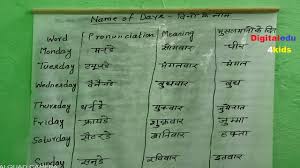 Name of Days - दिनों के नाम
Word Pronunciation Meaning मुसलमानी के दिन
Digitaledu
4kids
Monday मन्डे सोमवार पीर
Tuesday ट्यूजडे मंगलवार मंगल
Wednesday वेनेजडे बुधवार बुध
Thursday थर्सडे गुरुवार जुमेरात
Friday फ्राइडे शुक्रवार जुम्मा
Saturday सैटरडे शनिवार हफ्ता
Sunday सनडे रविवार इतवार